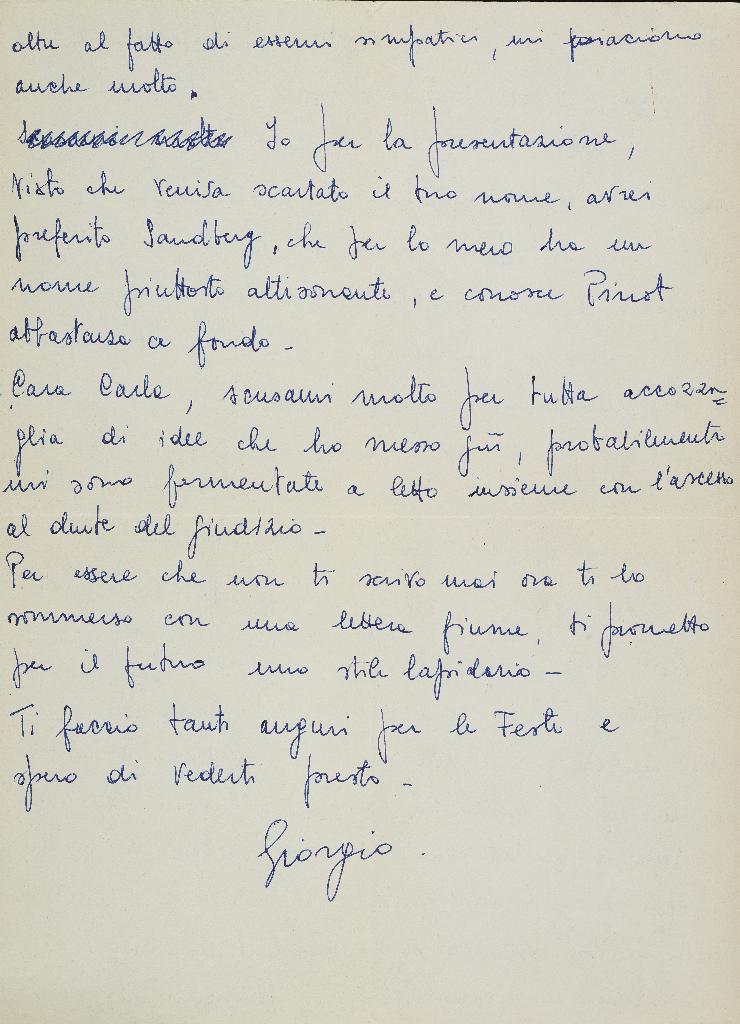 oltre al fatto di essermi simpatici, mi piacciono
anche molto.
Io per la presentazione,
visto che veniva scartato il tuo nome, avrei
preferito Sandberg, che per lo meno ha un
nome piuttosto altisonante, e conosce Pinot
abbastanza a fondo -
Cara Carla, scusami molto per tutta accozza=
glia di idee che ho messo giù, probabilmente
mi sono fermentate a letto insieme con l'ascesso
al dente del giudizio -
Per essere che non ti scrivo mai ora ti ho
sommerso con una lettera fiume, ti prometto
per il futuro uno stile lapidario -
Ti faccio tanti auguri per le Feste e
spero di vederti presto -
Giorgio.